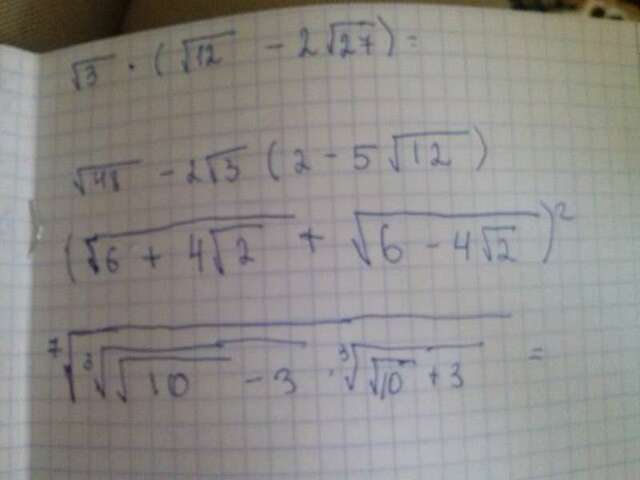 √3 · (√12 - 2√27) =
√48 - 2√3 (2 - 5√12)
(√(6 + 4√2) + √(6 - 4√2))²
⁷√(³√(√10 - 3) · ³√(√10 + 3)) =